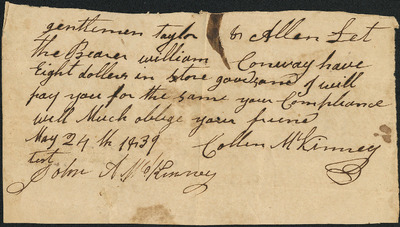 gentlemen Taylor & Allen Let
the Bearer william Conway have
Eight dollers in store goods and I will
pay you for the same your Compliance
will Much oblige your friend
May 24th 1839 Collin McKinney
test
John A McKinney